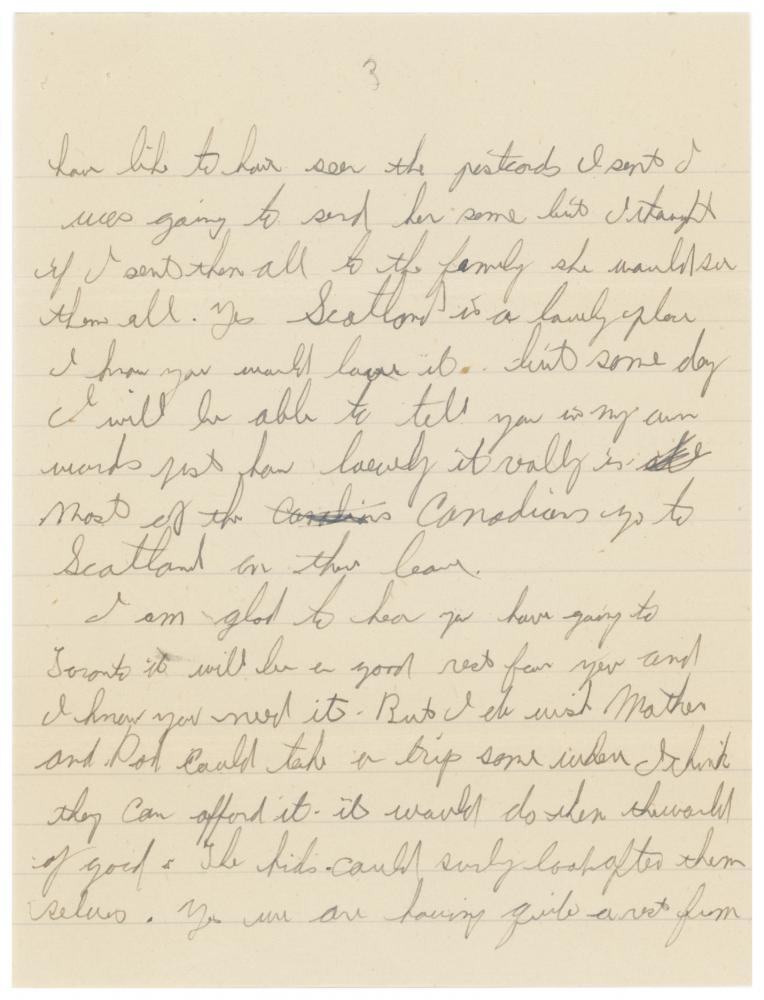 3
have like to have seen the postcards I sent I
was going to send her some but I thought
if I sent them all to the family she would see
them all. Yes Scotland is a lovely place
I know you would love it. but some day
I will be able to tell you in my own
words just how lovely it really is.
Most of the Canadians go to
Scotland on their leave.
I am glad to hear you have going to
Toronto it will be a good rest for you and
I know you need it. But I do wish Mother
and Dad could take a trip some where I think
they can afford it. it would do them the world
of good. The kids could surly look after them
selves. Yes we are having quite a rest from